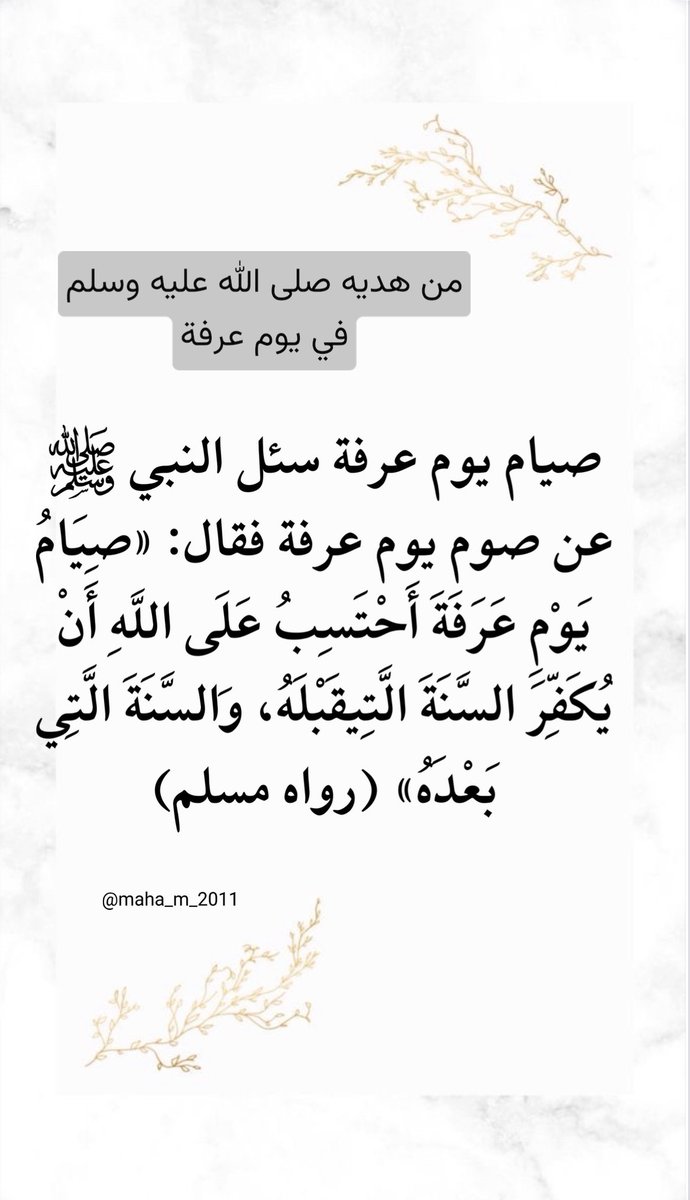 من هديه صلى الله عليه وسلم
في يوم عرفة
صيام يوم عرفة سئل النبي ﷺ
عن صوم يوم عرفة فقال: «صِيَامُ
يَوْمِ عَرَفَةَ أَحْتَسِبُ عَلَى اللَّهِ أَنْ
يُكَفِّرَ السَّنَةَ الَّتِيقَبْلَهُ، وَالسَّنَةَ الَّتِي
بَعْدَهُ» (رواه مسلم)
@maha_m_2011